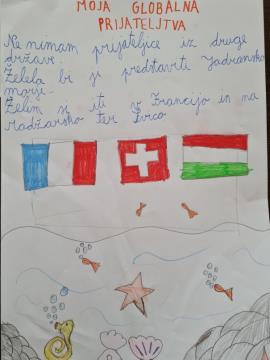 MOJA GLOBALNA
PRIJATELJTVA
Ne nimam prijateljice iz druge
države.
Želela bi ji predstavite Jadransko
morje.
Želim si iti v Francijo in na
Madžarsko ter Švico